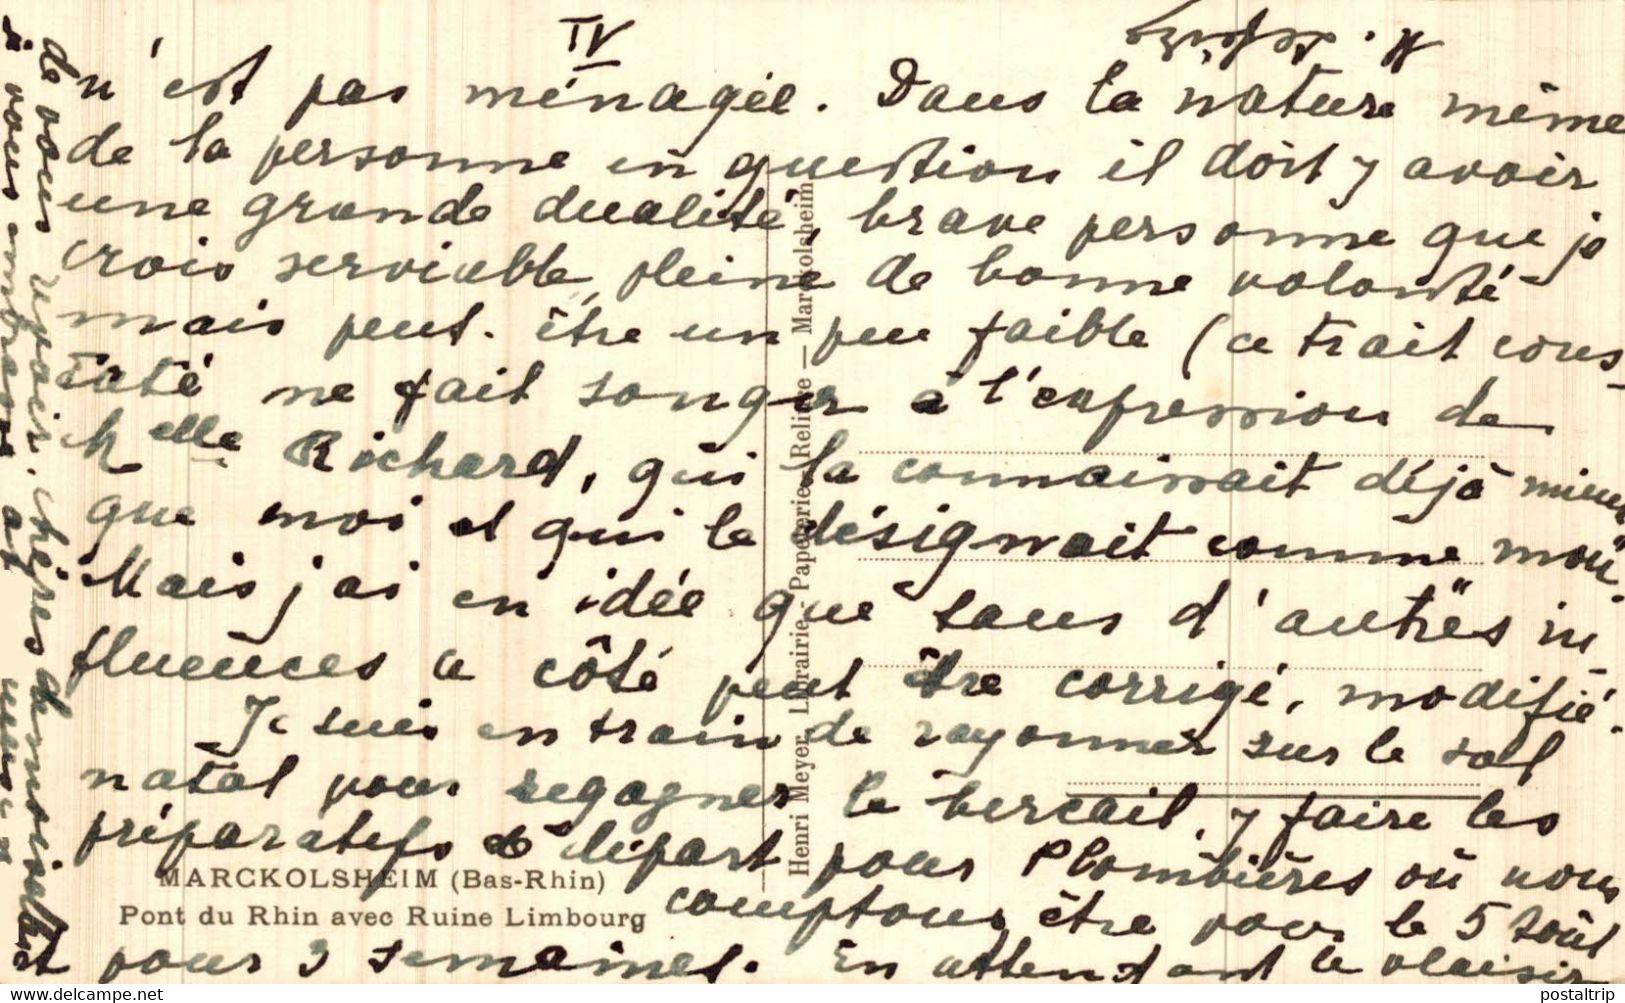 IV
n'est pas ménagée. Dans la nature même
de la personne en question il doit y avoir
une grande dualité, brave personne que je
crois serviable, pleine de bonne volonté
mais peut-être un peu faible (ce trait cons-
taté me fait songer à l'expression de
Melle Richard, qui la connaissait déjà mieux
que moi et qui la désignait comme mou
Mais j'ai en idée que sans d'autres in-
fluences à côté peut être corrigé, modifié.
Je suis en train de rayonner sur le sol
natal pour regagner le bercail, y faire les
préparatifs de départ pour Plombières où nous
comptons être pour le 5 Août
et pour 3 semaines. En attendant le plaisir
de vous revoir, chères demoiselles
je vous embrasse
Henri Meyer, Librairie - Papeterie - Reliure — Marckolsheim
MARCKOLSHEIM (Bas-Rhin)
Pont du Rhin avec Ruine Limbourg
postaltrip